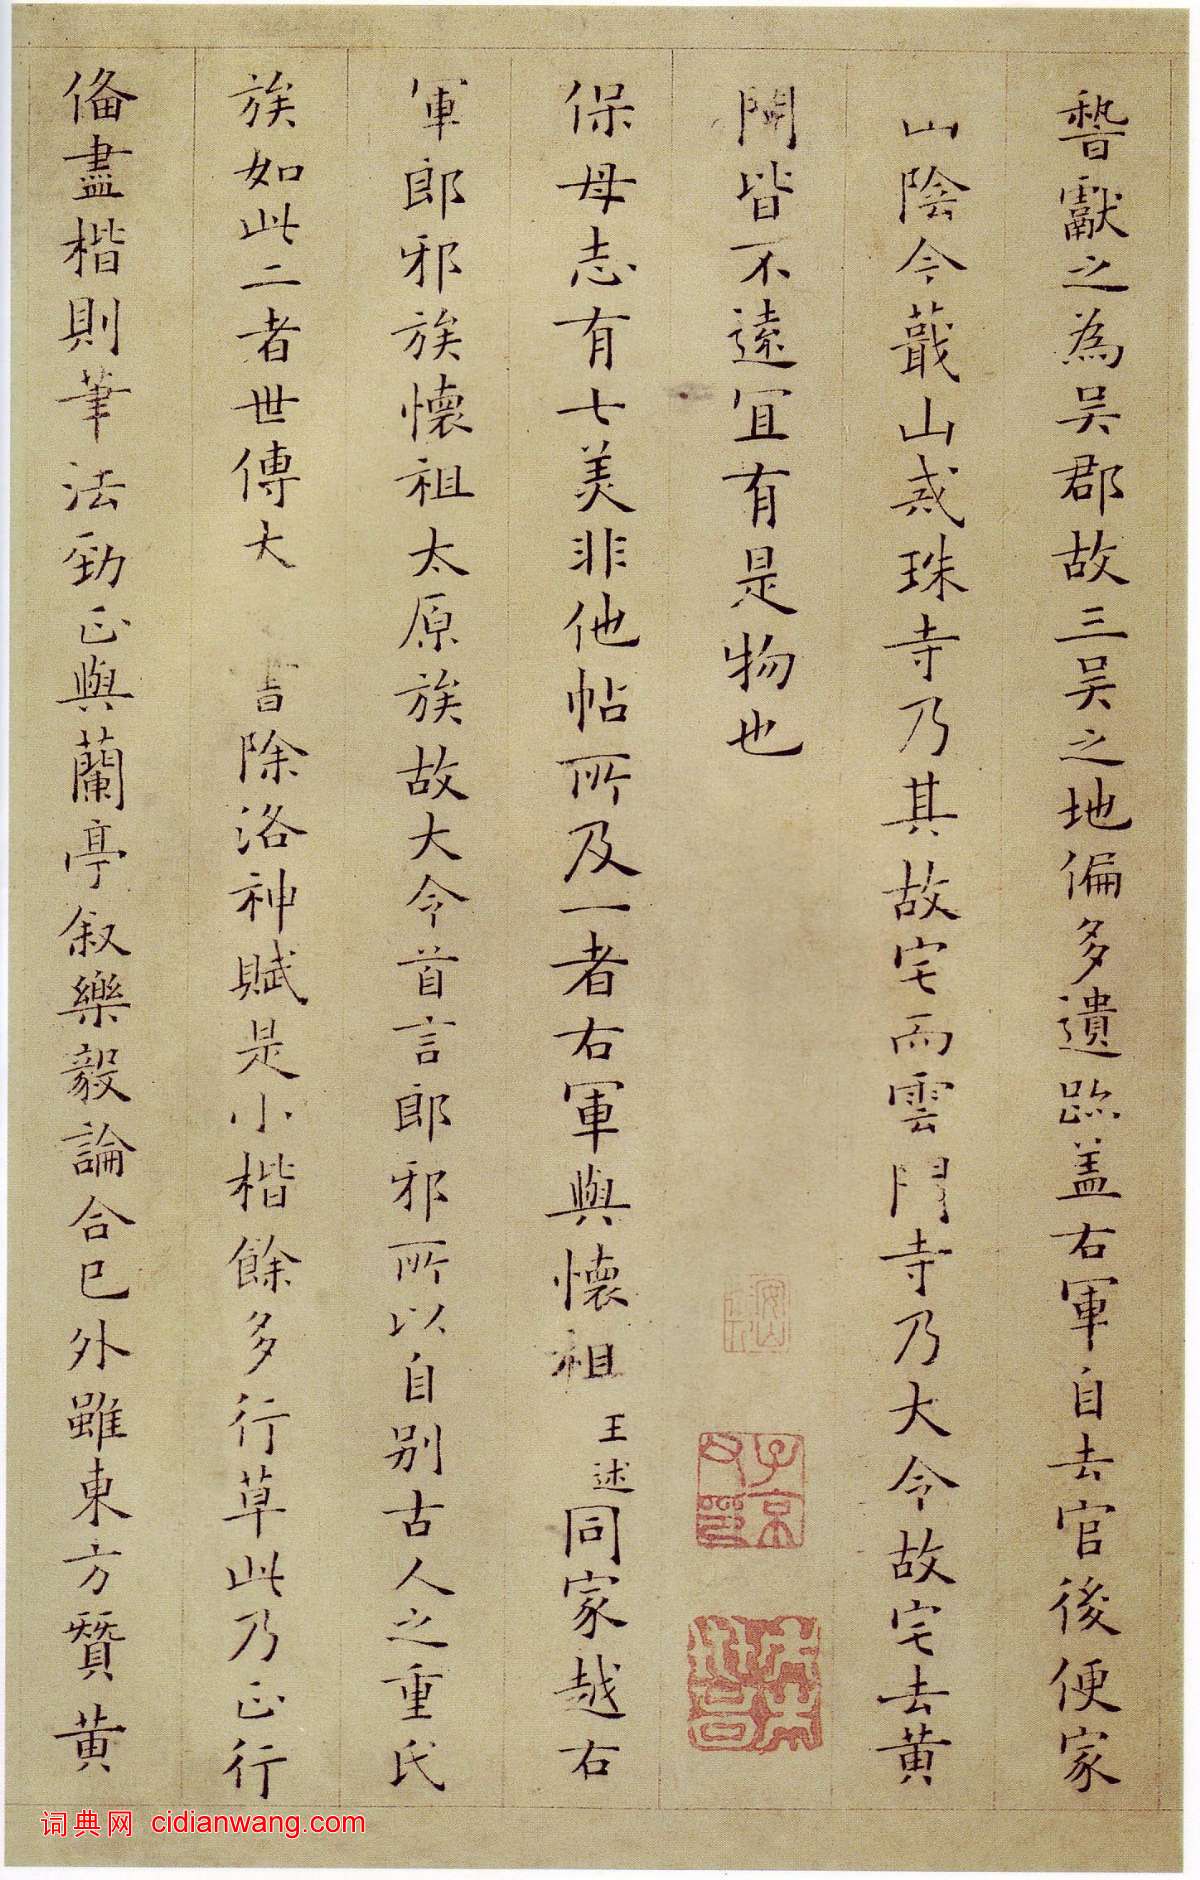 獻之為吳郡故三吳之地偏多遺跡盖右軍自去官後便家
山陰今蕺山戒珠寺乃其故宅而雲門寺乃大令故宅去黄
閍皆不遠宜有是物也
保母志有七美非他帖所及一者右軍與懷祖王述同家越右
軍郎邪族懷祖太原族故大令首言郎邪所以自别古人之重氏
族如此二者世傳大 書除洛神賦是小楷餘多行草此乃正行
俻盡楷則筆法勁正與蘭亭叙樂毅論合已外雖東方贊黄
词典网 cidianwang.com